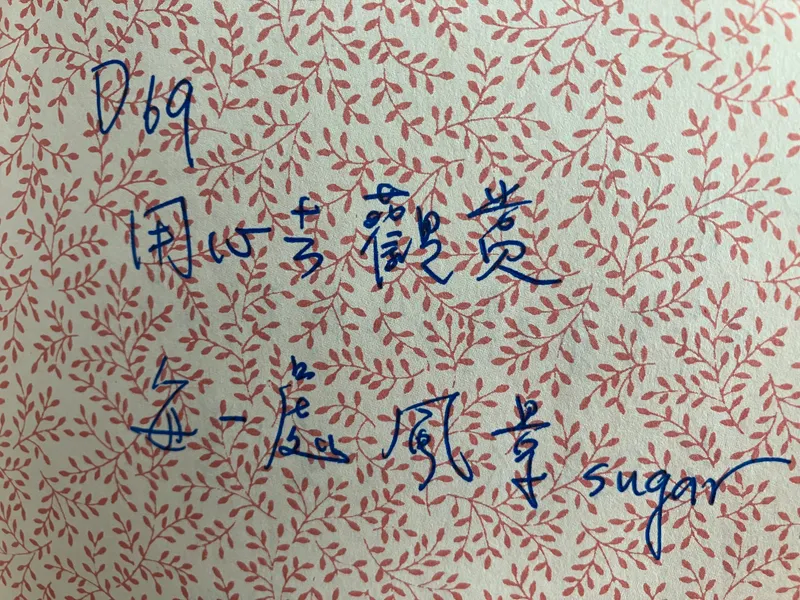 D69
用心去觀賞
每一處風景 sugar